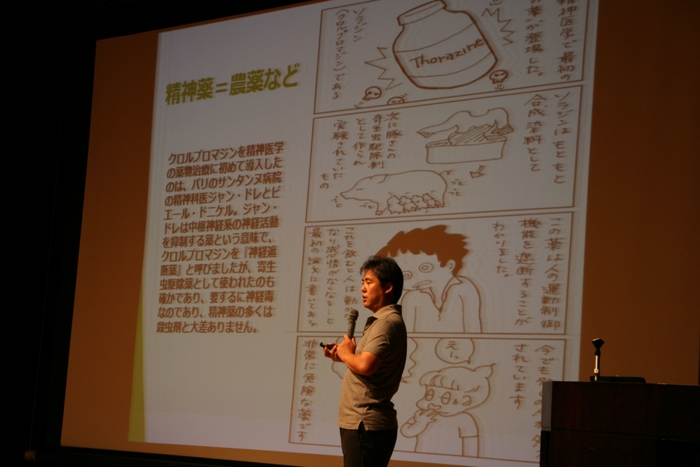 精神薬＝農薬など
クロルプロマジンを精神医学
の薬物治療に初めて導入した
のは、パリのサンタンヌ病院
の精神科医ジャン・ドレとピ
エール・ドニケル。ジャン・
ドレは中枢神経系の神経活動
を抑制する薬という意味で、
クロルプロマジンを『神経遮
断薬』と呼びましたが、寄生
虫駆除薬として使われたのも
確かであり、要するに神経毒
なのであり、精神薬の多くは
殺虫剤と大差ありません。
精神医学で最初の
薬が登場した。
Thorazine
ソラジン
(クロルプロマジン)である
ソラジンはもともと
合成染料として
次に豚さんの
寄生虫駆除剤
として作られ
実験されていた
もの
この薬は人の運動制御
機能を遮断することが
わかりました。
これを飲むと人は動かなく
なり感情がなくなる…と
最初の論文に書いてある
えっ
今でも
されています
非常に危険な薬です